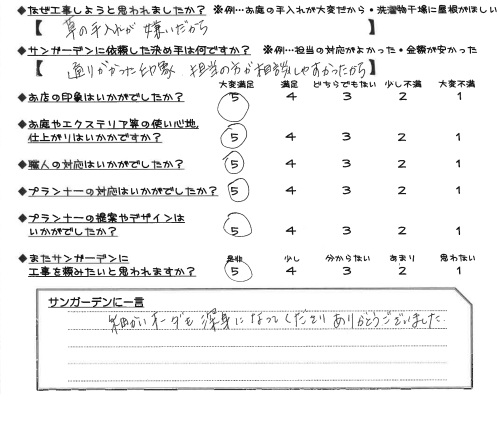 ◆なぜ工事しようと思われましたか？ ※例…お庭の手入れが大変だから・洗濯物干場に屋根がほしい
【 草の手入れが嫌いだから 】
◆サンガーデンに依頼した決め手は何ですか？ ※例…担当の対応がよかった・金額が安かった
【 通りがかった印象 担当の方が相談しやすかったから 】
大変満足 満足 どちらでもない 少し不満 大変不満
◆お店の印象はいかがでしたか？ 5 4 3 2 1
◆お庭やエクステリア等の使い心地、
仕上がりはいかかですか？ 5 4 3 2 1
◆職人の対応はいかがでしたか？ 5 4 3 2 1
◆プランナーの対応はいかがでしたか？ 5 4 3 2 1
◆プランナーの提案やデザインは
いかがでしたか？ 5 4 3 2 1
◆またサンガーデンに 是非 少し 分からない あまり 思わない
工事を頼みたいと思われますか？ 5 4 3 2 1
サンガーデンに一言
細かいオーダも 深身になってくださり ありがとうございました。